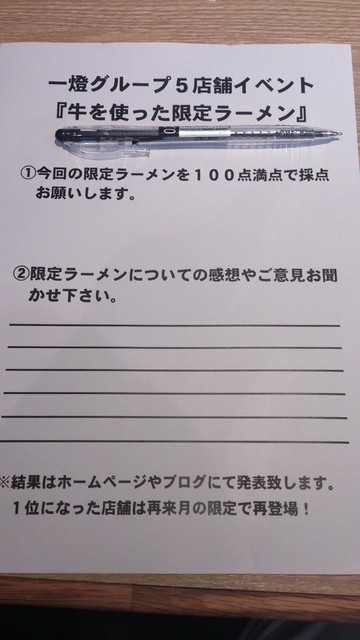 一燈グループ5店舗イベント
『牛を使った限定ラーメン』
①今回の限定ラーメンを100点満点で採点
お願いします。
②限定ラーメンについての感想やご意見お聞
かせ下さい。
※結果はホームページやブログにて発表致します。
1位になった店舗は再来月の限定で再登場!